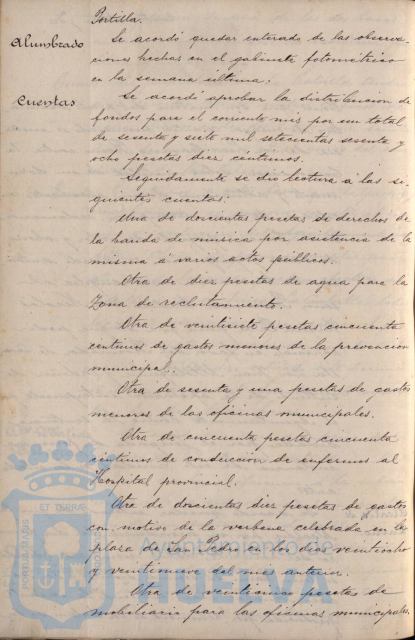 Portilla.
Alumbrado
Se acordó quedar enterado de las observa-
ciones hechas en el gabinete fotométrico
en la semana última.
Cuentas
Se acordó aprobar la distribucion de
fondos para el corriente mes por un total
de sesenta y siete mil setecientas sesenta y
ocho pesetas diez centimos.
Seguidamente se dió lectura á las si-
guientes cuentas:
Una de doscientas pesetas de derechos de
la banda de música por asistencia de la
misma á varios actos públicos.
Otra de diez pesetas de agua para la
Zona de reclutamiento.
Otra de veintisiete pesetas cincuenta
centimos de gastos menores de la prevencion
municipal.
Otra de sesenta y una pesetas de gastos
menores de las oficinas municipales.
Otra de cincuenta pesetas cincuenta
centimos de conduccion de enfermos al
Hospital provincial.
Otra de doscientas diez pesetas de gastos
con motivo de la verbena celebrada en la
plaza de San Pedro en los dias veintiocho
y veintinueve del mes anterior.
Otra de veinticinco pesetas de
mobiliario para las oficinas municipales,
ET TERRÆ
PORTUS MARIS
Ayuntamiento de
HUELVA